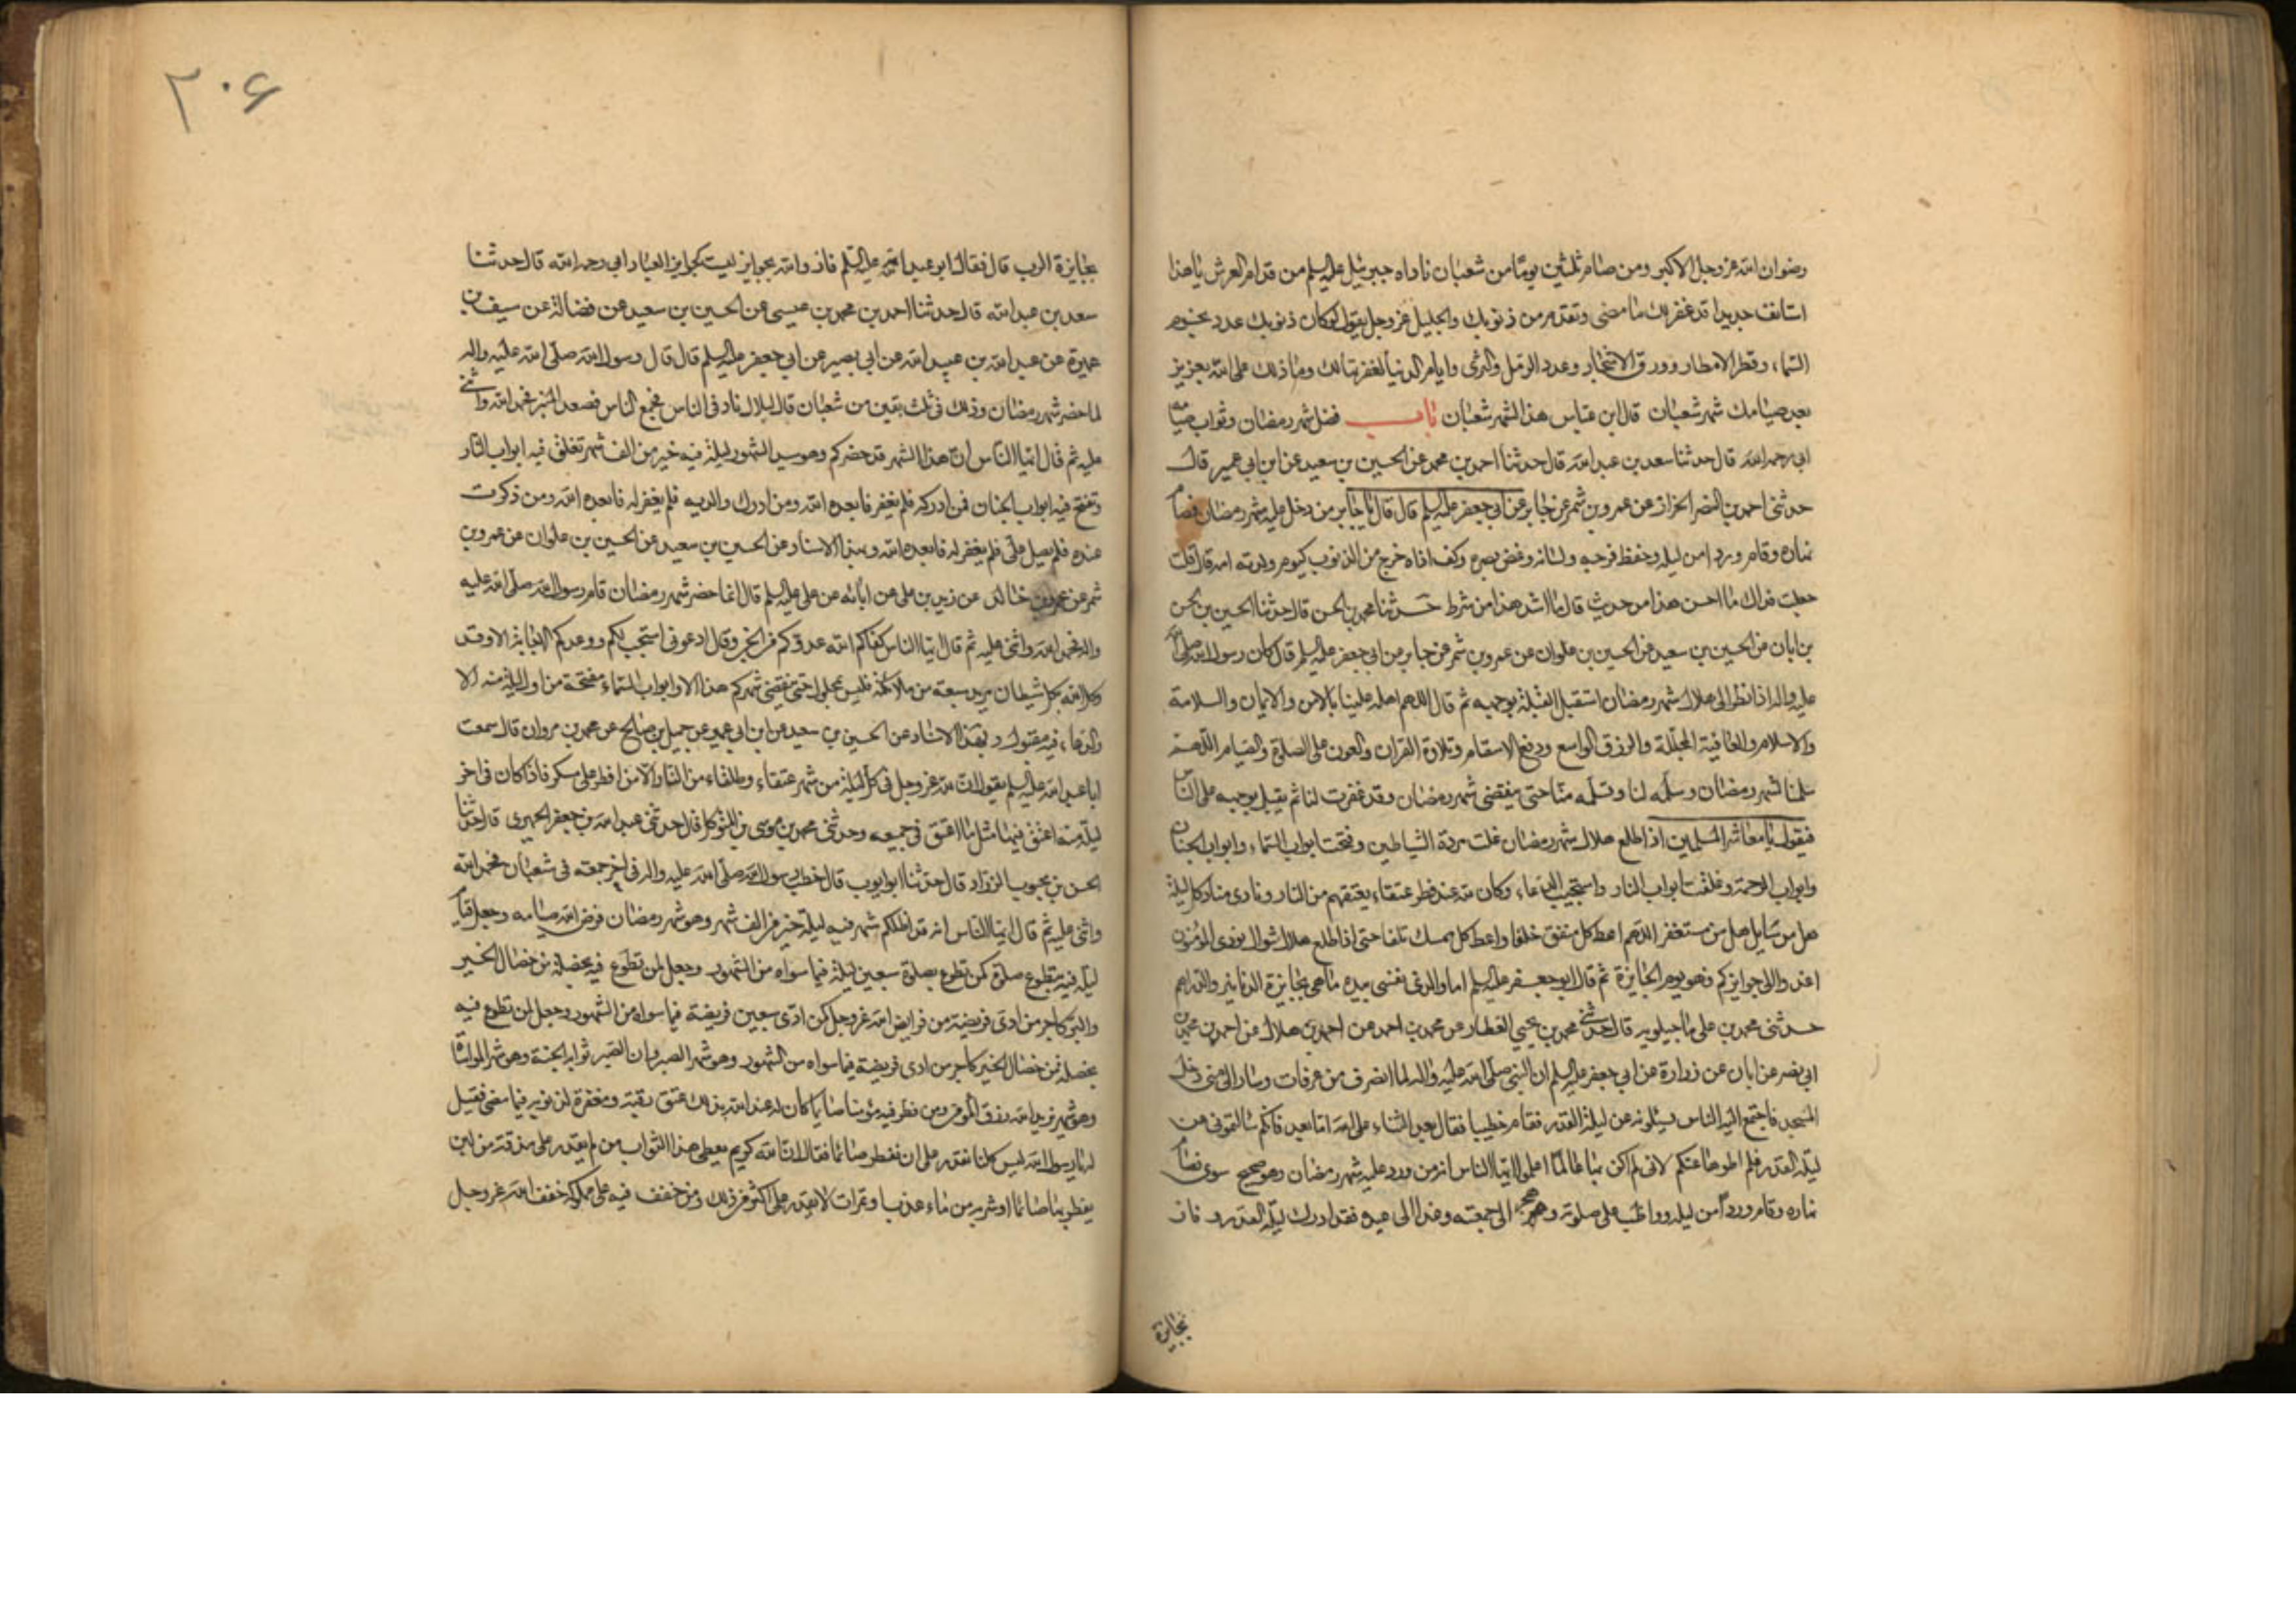 رضوان الله عز وجل الاكبر ومن صام ثلثين يوما من شعبان ناداه جبرئيل عليه السلم من قدام العرش يا هذا
استانف جديدا قد غفر لك ما مضى وتقدم من ذنوبك والجليل عز وجل يقول لو كان ذنوبك عدد نجوم
السماء وقطر الامطار وورق الاشجار وعدد الرمل والثرى وايام الدنيا لغفرتها لك وما ذلك على الله بعزيز
بعد صيامك شهر شعبان قال ابن عباس هذا لشهر شعبان باب فضل شهر رمضان وثواب صيامه
ابى رحمه الله قال حدثنا سعد بن عبد الله قال حدثنا احمد بن محمد عن الحسين بن سعيد عن ابن ابى عمير قال
حدثنى احمد بن النضر الخزاز عن عمرو بن شمر عن جابر عن ابى جعفر عليه السلم قال قال يا جابر من دخل عليه شهر رمضان فصام
نهاره وقام وردا من ليله وحفظ فرجه ولسانه وغض بصره وكف اذاه خرج من الذنوب كيوم ولدته امه قال قلت
جعلت فداك ما احسن هذا من حديث قال ما اشد هذا من شرط حدثنا محمد بن الحسن قال حدثنا الحسين بن الحسن
بن ابان عن الحسين بن سعيد عن الحسين بن علوان عن عمرو بن شمر عن جابر عن ابى جعفر عليه السلم قال كان رسول الله صلى الله
عليه واله اذا نظر الى هلال شهر رمضان استقبل القبلة بوجهه ثم قال اللهم اهله علينا بالامن والايمان والسلامة
والاسلام والعافية المجللة والرزق الواسع ودفع الاسقام وتلاوة القران والعون على الصلوة والصيام اللهم
سلمنا لشهر رمضان وسلمه لنا وتسلمه منا حتى ينقضى شهر رمضان وقد غفرت لنا ثم يقبل بوجهه على الناس
فيقول يا معاشر المسلمين اذا طلع هلال شهر رمضان غلت مردة الشياطين وفتحت ابواب السماء وابواب الجنان
وابواب الرحمة وغلقت ابواب النار واستجيب الدعاء وكان لله عند فطر عتقاء يعتقهم من النار ونادى مناد كل ليلة
هل من سايل هل من مستغفر اللهم اعط كل منفق خلفا واعط كل ممسك تلفا حتى اذا طلع هلال شوال نودى المؤمنون
اغدوا الى جوايزكم فهو يوم الجايزة ثم قال ابو جعفر عليه السلم اما والذى نفسى بيده ما هى بجايزة الدنانير والدراهم
حدثنى محمد بن على ماجيلويه قال حدثنى محمد بن يحيى العطار عن محمد بن احمد عن احمد بن هلال عن احمد بن محمد بن
ابى نصر عن ابان عن زرارة عن ابى جعفر عليه السلم ان النبى صلى الله عليه واله لما انصرف من عرفات وسار الى منى دخل
المسجد فاجتمع اليه الناس يسئلونه عن ليلة القدر فقام خطيبا فقال بعد الثناء على الله اما بعد فانكم سالتمونى عن
ليلة القدر فلم اطوها عنكم لانى لم اكن بها عالما اعلموا ايها الناس انه من ورد عليه شهر رمضان وهو صحيح سوى فصام
نهاره وقام وردا من ليله وواظب على صلوته وهجر الى جمعته وغدا الى عيده فقد ادرك ليلة القدر وفاز
بجايزة
٢٠۶
بجايزة الرب قال فقال ابو عبد الله عليه السلم فاز والله بجوايز ليست كجوايز العباد ابى رحمه الله قال حدثنا
سعد بن عبد الله قال حدثنا احمد بن محمد بن عيسى عن الحسين بن سعيد عن فضالة عن سيف بن
عميرة عن عبد الله بن عبيد الله عن ابى بصير عن ابى جعفر عليه السلم قال قال رسول الله صلى الله عليه واله
لما حضر شهر رمضان وذلك فى ثلث بقين من شعبان قال لبلال ناد فى الناس فجمع الناس فصعد المنبر فحمد الله واثنى
عليه ثم قال ايها الناس ان هذا الشهر قد حضركم وهو سيد الشهور ليلة فيه خير من الف شهر تغلق فيه ابواب النار
وتفتح فيه ابواب الجنان فمن ادركه فلم يغفر فابعده الله ومن ادرك والديه فلم يغفر له فابعده الله ومن ذكرت
عنده فلم يصل على فلم يغفر له فابعده الله وبهذا الاسناد عن الحسين بن سعيد عن الحسين بن علوان عن عمرو بن
شمر عن عمرو بن خالد عن زيد بن على عن ابائه عن على عليه السلم قال لما حضر شهر رمضان قام رسول الله صلى الله عليه
واله فحمد الله واثنى عليه ثم قال ايها الناس كفاكم الله عدوكم من الجن وقال ادعونى استجب لكم ووعدكم الاجابة الا وقد
وكل الله بكل شيطان مريد سبعة من ملائكته فليس بمحلول حتى ينقضى شهركم هذا الا وابواب السماء مفتحة من اول ليلة منه الا
والدعاء فيه مقبول وبهذا الاسناد عن الحسين بن سعيد عن ابن ابى عمير عن جميل بن صالح عن محمد بن مروان قال سمعت
ابا عبد الله عليه السلم يقول ان لله عز وجل فى كل ليلة من شهر عتقاء وطلقاء من النار الا من افطر على مسكر فاذا كان فى اخر
ليلة منه اعتق فيها مثل ما اعتق فى جميعه وحدثنى محمد بن موسى بن المتوكل قال حدثنى عبد الله بن جعفر الحميرى قال حدثنا
الحسن بن محبوب الزراد قال حدثنا ابو ايوب قال خطب رسول الله صلى الله عليه واله فى اخر جمعة فى شعبان فحمد الله
واثنى عليه ثم قال ايها الناس انه قد اظلكم شهر فيه ليلة خير من الف شهر وهو شهر رمضان فرض الله صيامه وجعل قيام
ليلة فيه بتطوع صلوة كمن تطوع بصلوة سبعين ليلة فيما سواه من الشهور وجعل لمن تطوع فيه بخصلة من خصال الخير
والبر كاجر من ادى فريضة من فرايض الله عز وجل كمن ادى سبعين فريضة فيما سواه من الشهور وجعل لمن تطوع فيه
بخصلة من خصال الخير كاجر من ادى فريضة فيما سواه من الشهور وهو شهر الصبر وان الصبر ثوابه الجنة وهو شهر المواساة
وهو شهر يزيد الله رزق المؤمن ومن فطر فيه مؤمنا صايما كان له عند الله بذلك عتق رقبة ومغفرة لذنوبه فيما مضى فقيل
له يا رسول الله ليس كلنا نقدر على ان نفطر صائما فقال ان الله كريم يعطى هذا الثواب من لم يقدر على مذقة من لبن
يفطر بها صائما او شربه من ماء عذب او تمرات لا يقدر على اكثر من ذلك ومن خفف فيه على مملوكه خفف الله عز وجل